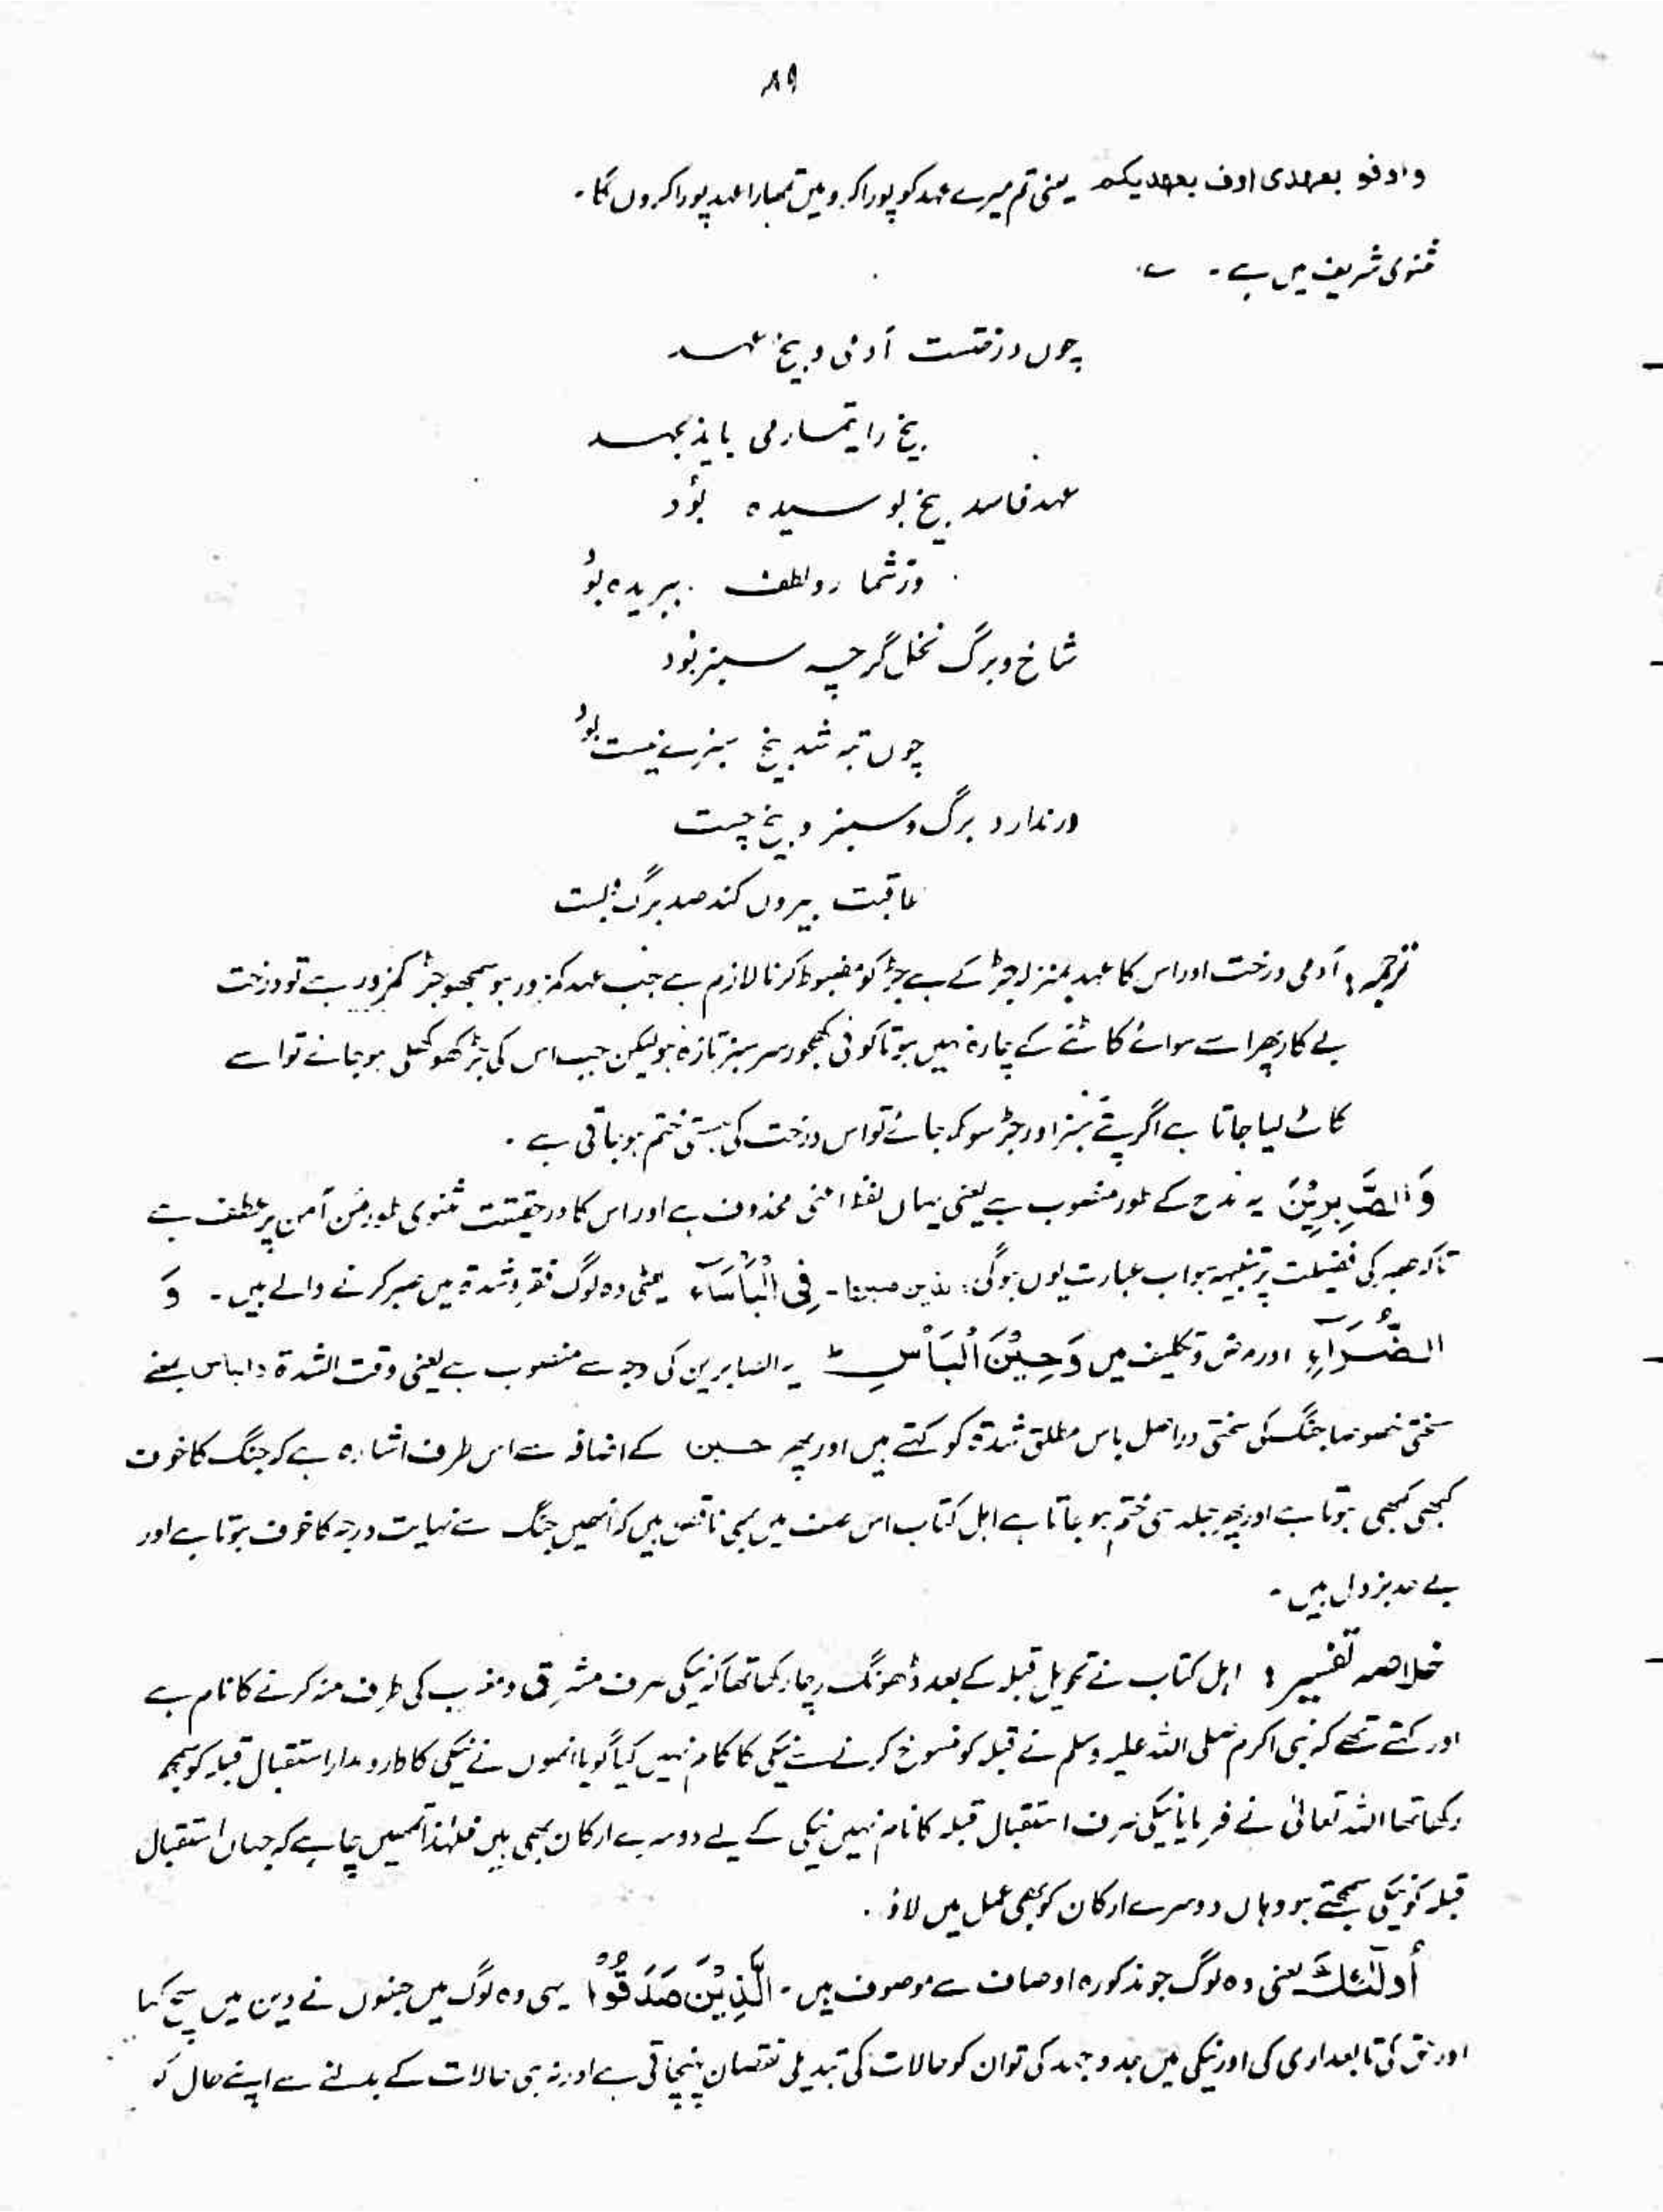 ۸۹
واوفو بعهدی اوف بعهدیکم یعنی تم میرے عہد کو پورا کرو میں تمہارا عہد پورا کروں گا۔
مثنوی شریف میں ہے۔ ؎
چوں درختست آدمی و بیخ عہد
بیخ را تیمار می باید بجہد
عہد فاسد بیخ بوسیدہ بُود
وز شما ر و لطف ببریدہ بُود
شاخ و برگ نخل گرچہ سبز بُود
چوں تبہ شد بیخ سبزے نیست بُود
ور ندارد برگ و سبز و بیخ چست
عاقبت بیروں کند صد برگ بست
ترجمہ: آدمی درخت اور اس کا عہد بمنزلہ جڑ کے ہے جڑ کو مضبوط کرنا لازم ہے جب عہد کمزور ہو سمجھو جڑ کمزور ہے تو درخت
بے کار پھر اسے سوائے کاٹنے کے چارہ نہیں ہوتا کوئی کھجور سرسبز تازہ ہو لیکن جب اس کی جڑ کھوکھلی ہو جائے تو اسے
کاٹ لیا جاتا ہے اگر پتے سبز اور جڑ سوکھ جائے تو اس درخت کی ہستی ختم ہو جاتی ہے۔
وَالصّٰبِرِیْنَ یہ مدح کے طور منصوب ہے یعنی یہاں لفظ اعنی محذوف ہے اور اس کا درحقیقت مثنوی طور من آمن پر عطف ہے
تاکہ صبر کی فضیلت پر تنبیہہ ہو اب عبارت یوں ہوگی: صبروا۔ فِی الْبَاْسَآءِ یعنی وہ لوگ فقر و شدۃ میں صبر کرنے والے ہیں۔ وَ
الضَّرَّآءِ اور مرض و تکلیف میں وَحِیْنَ الْبَاْسِ ط یہ الصابرین کی وجہ سے منصوب ہے یعنی وقت الشدۃ والباس بمعنے
سختی خصوصا جنگ کی سختی دراصل باس مطلق شدۃ کو کہتے ہیں اور پھر حسین کے اضافہ سے اس طرف اشارہ ہے کہ جنگ کا خوف
کبھی کبھی ہوتا ہے اور پھر جلد ہی ختم ہو جاتا ہے اہل کتاب اس صفت میں بھی ناقص ہیں کہ انھیں جنگ سے نہایت درجہ کا خوف ہوتا ہے اور
بے حد بزدل ہیں۔
خلاصہ تفسیر: اہل کتاب نے تحویل قبلہ کے بعد ڈھونگ رچا رکھا تھا کہ نیکی صرف مشرق و مغرب کی طرف منہ کرنے کا نام ہے
اور کہتے تھے کہ نبی اکرم صلی اللہ علیہ وسلم نے قبلہ کو منسوخ کرنے سے نیکی کا کام نہیں کیا گویا انھوں نے نیکی کا دارومدار استقبال قبلہ کو سمجھ
رکھا تھا اللہ تعالیٰ نے فرمایا نیکی صرف استقبال قبلہ کا نام نہیں نیکی کے لیے دوسرے ارکان بھی ہیں فلہٰذا تمھیں چاہیے کہ جہاں استقبال
قبلہ کو نیکی سمجھتے ہو وہاں دوسرے ارکان کو بھی عمل میں لاؤ۔
أُولٰٓئِكَ یعنی وہ لوگ جو مذکورہ اوصاف سے موصوف ہیں۔ الَّذِیْنَ صَدَقُوْا یہی وہ لوگ ہیں جنھوں نے دین میں سچ کہا
اور حق کی تابعداری کی اور نیکی میں جدوجہد کی تو ان کو حالات کی تبدیلی نقصان پہنچاتی ہے اور نہ ہی حالات کے بدلنے سے اپنے حال کو